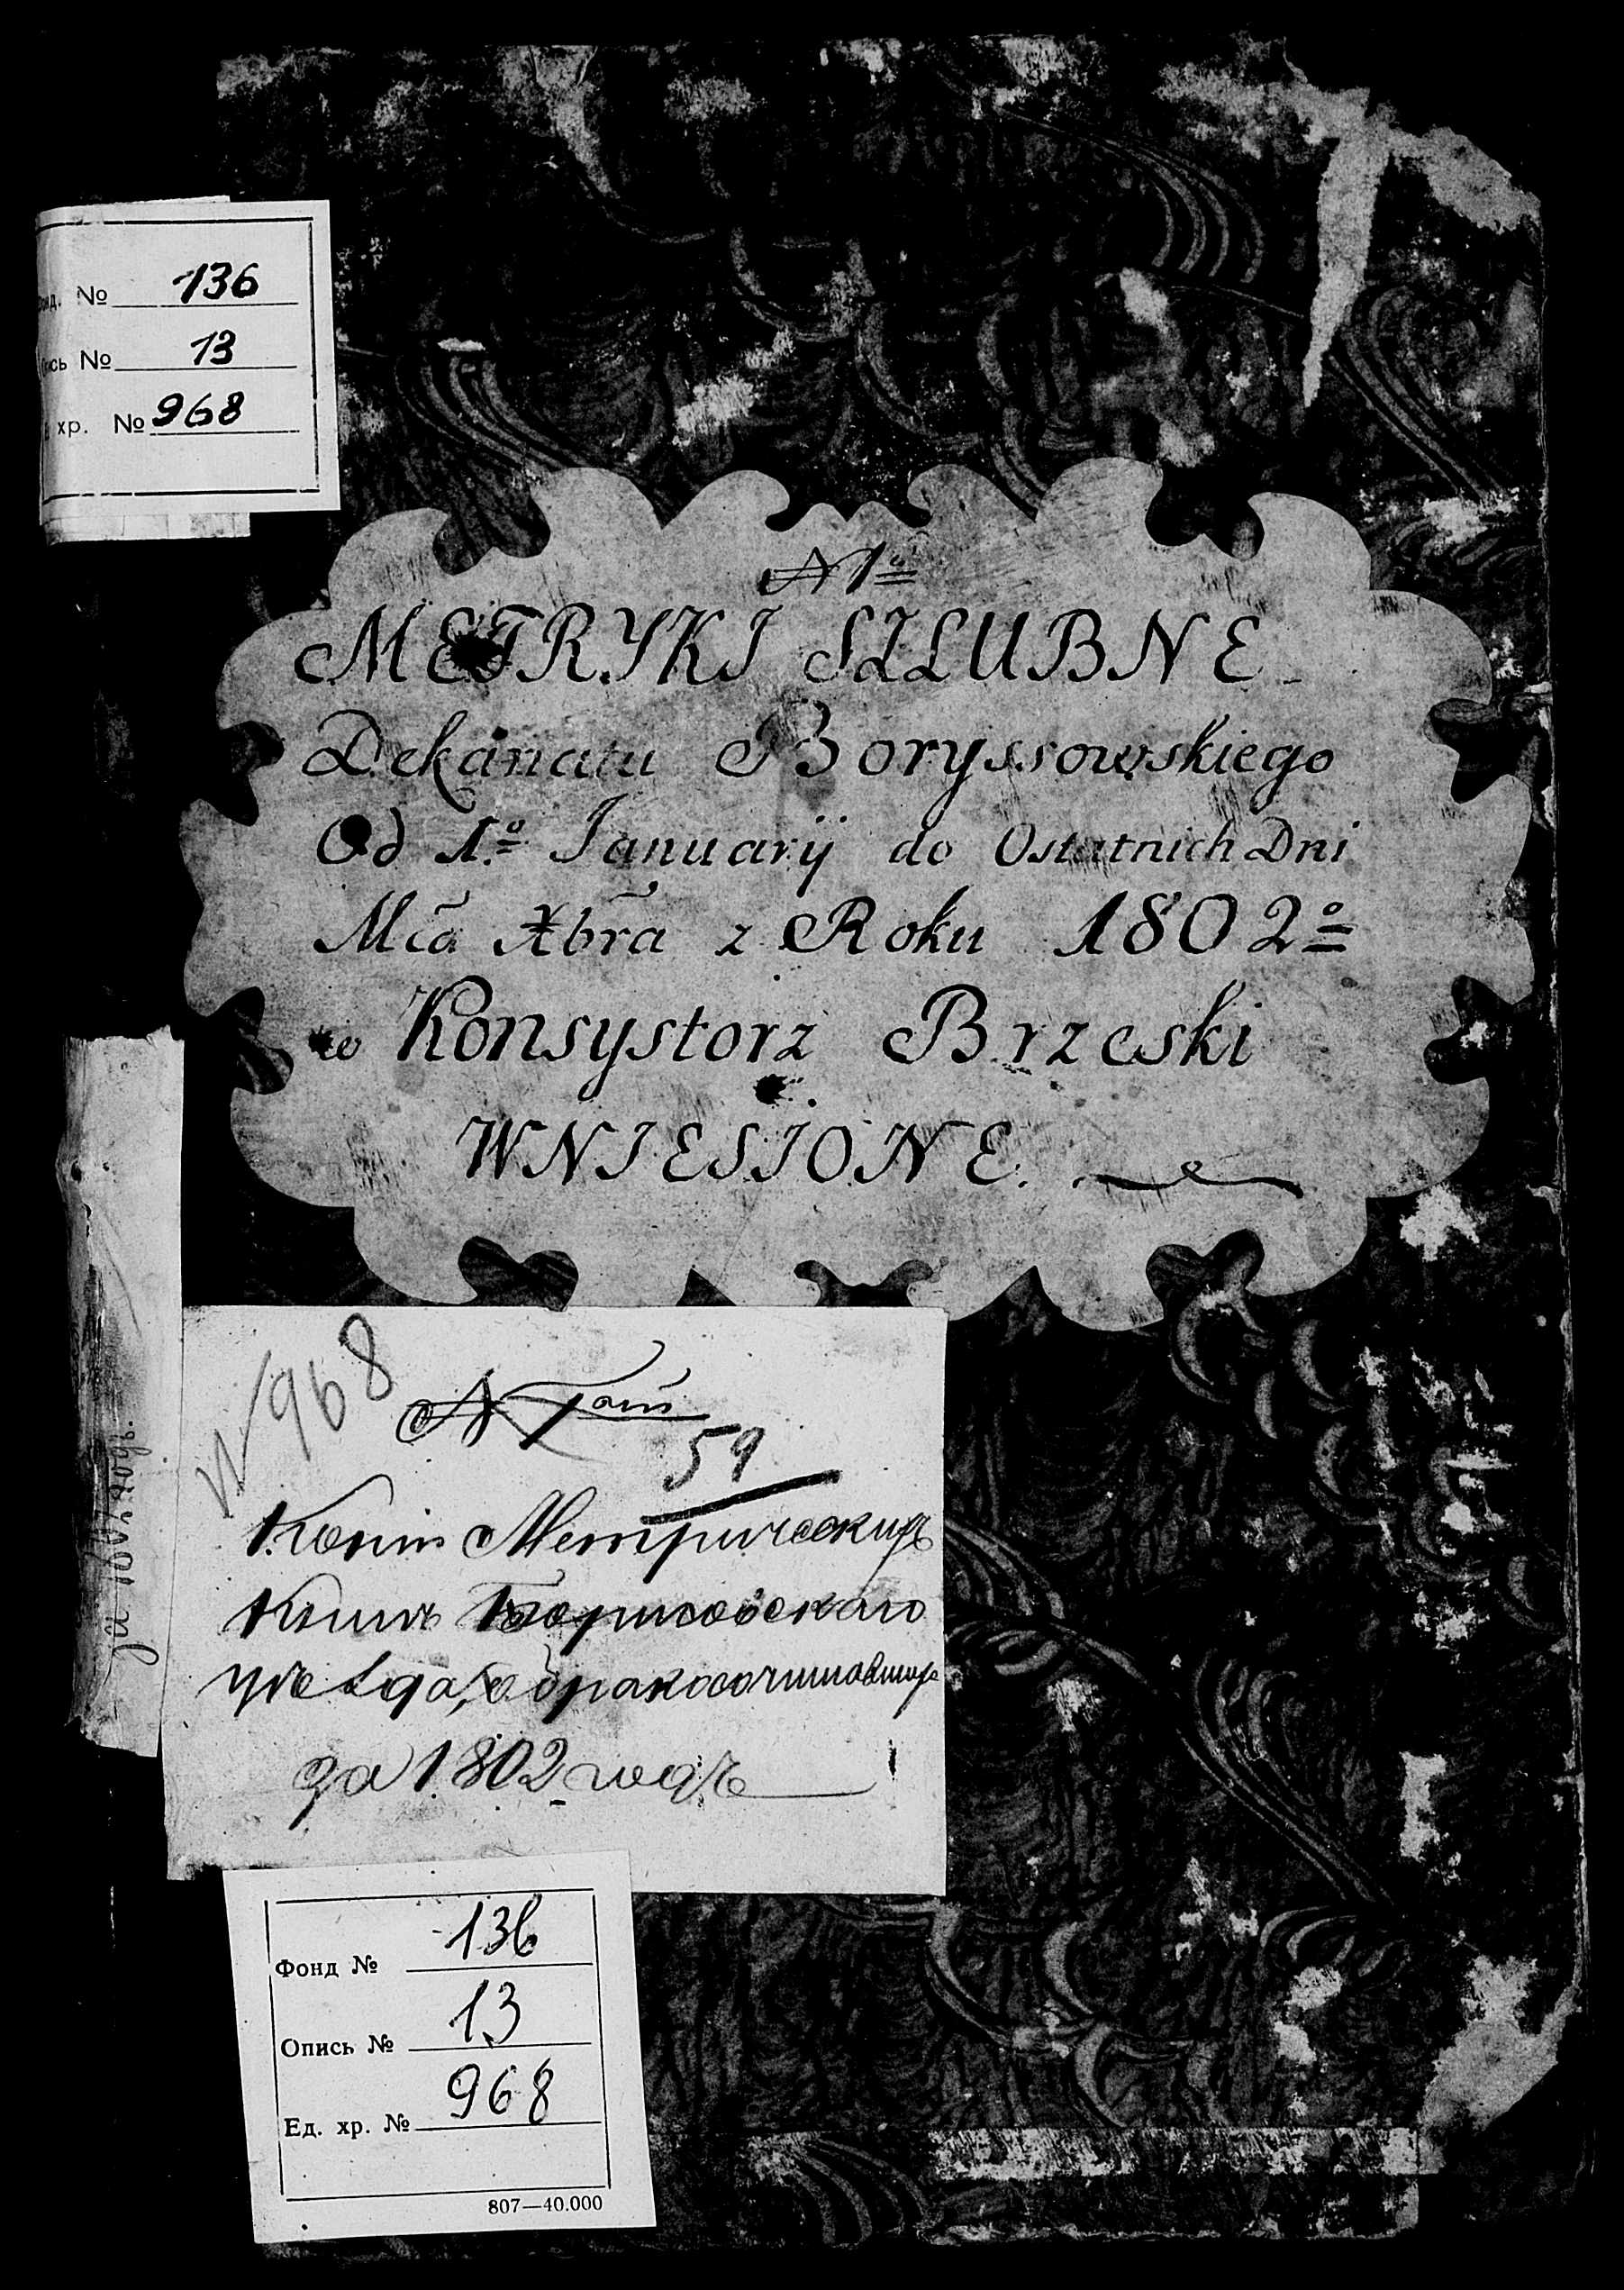 Фонд. № 136
Опись № 13
хр. № 968
N 1º
METRYKI SZLUBNE
Dekanatu Boryssowskiego
Od 1º Januarij do Ostatnich Dni
Mca Xbra z Roku 1802º
w Konsystorz Brzeski
WNIESIONE.
за 1802 годъ.
N 968
59
Копіи Метрическихъ
Книгъ Борисовскаго
уезда, о бракосочитавшихся
за 1802 годъ
Фонд № 136
Опись № 13
Ед. хр. № 968
807—40.000